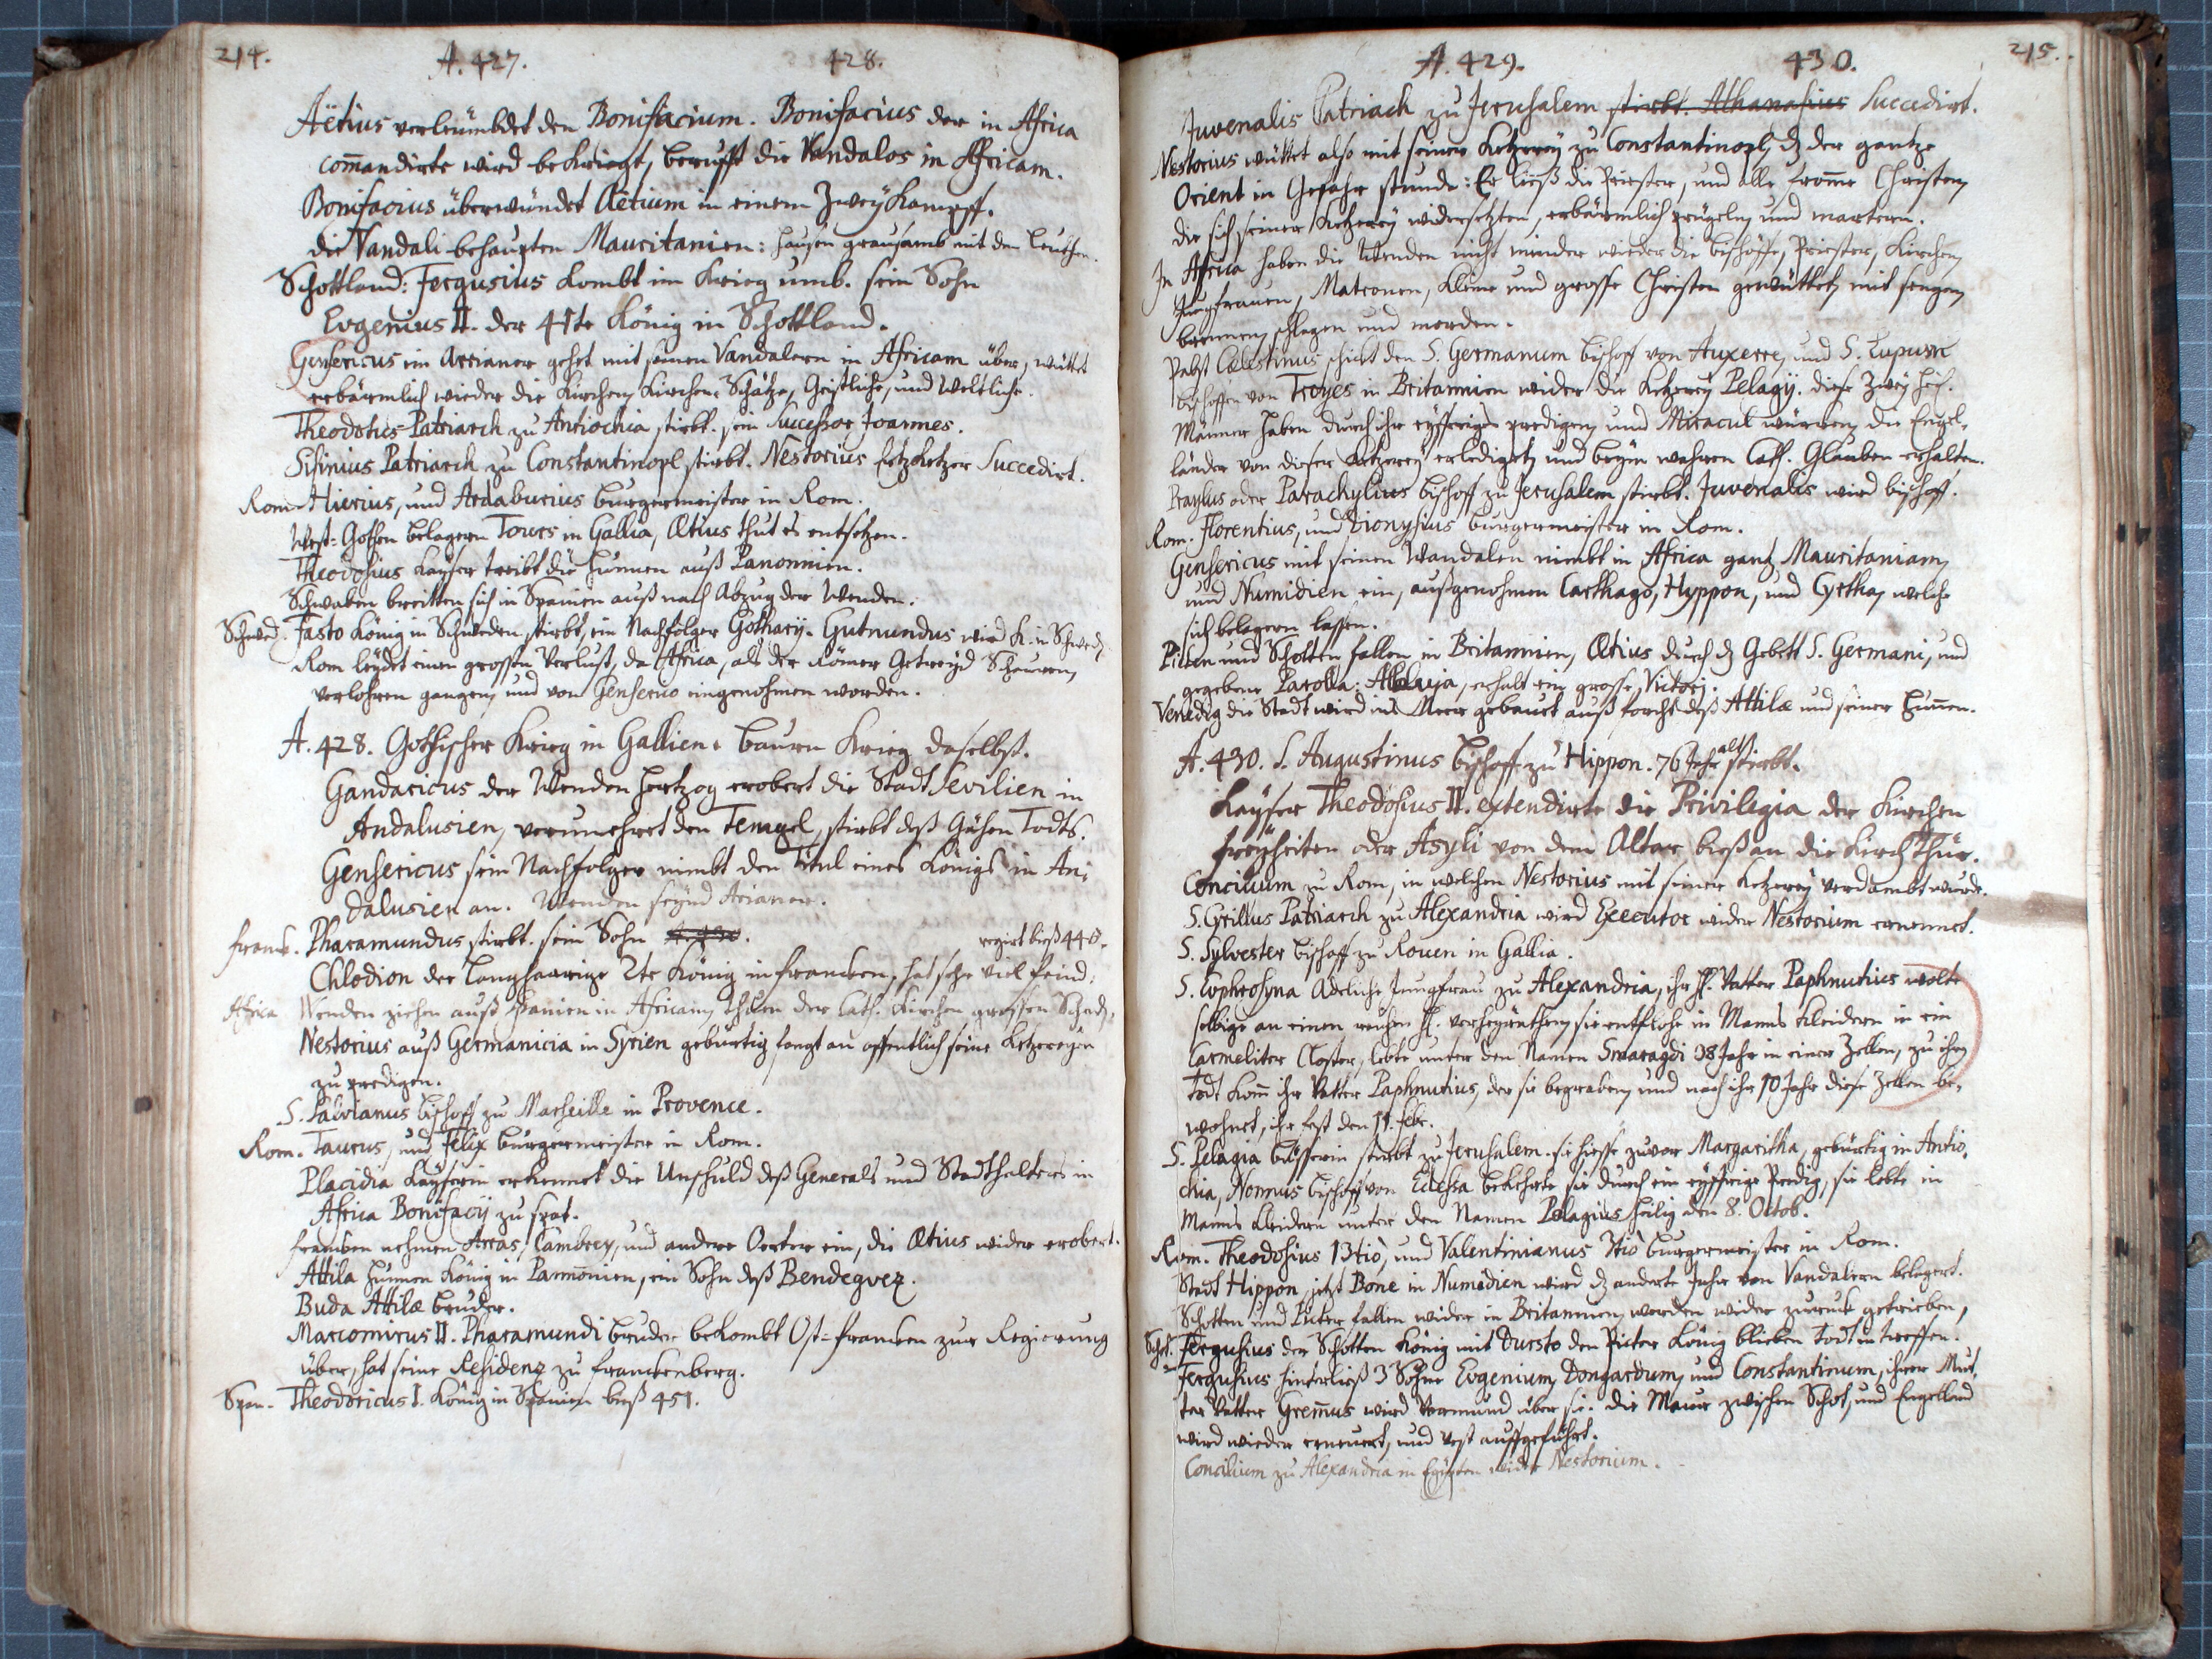 214. A. 427. 428.
Aëtius verleümbdet den Bonifacium. Bonifacius der in Africa
com̄andirte wird bekriegt, berufft die Vandalos in Africam.
Bonifacius überwündet Aëtium in einem Zweykampff.
die Vandali behaupten Mauritanien: hausen grausamb mit den Leuthen.
Schottland: Fergusius kombt im Krieg umb. sein Sohn
Evgenius II. der 41te König in Schottland.
Gensericus ein Arrianer gehet mit seinen Vandalern in Africam über, wüttet
erbärmlich wieder die Kirchen, Kirchen-Schätze, Geistliche, und Weltliche.
Theodotus Patriarch zu Antiochia stirbt. sein Successor Joannes.
Sisinius Patriarch zu Constantinopl stirbt. Nestorius Ertzketzer Succedirt.
Rom. Hierius, und Ardaburius burgermeister in Rom.
West-Gothen belagern Tours in Gallia, Ætius thut es entsetzen.
Theodosius Kayser treibt die Hunnen auß Panonnien.
Schwaben breitten sich in Spanien auß nach Abzug der Wenden.
Schwed. Fasto König in Schweden stirbt, ein Nachfolger Gotharÿ. Gutmundus wird K. in Schwed.
Rom leydet einen grossen Verlust, da Africa, als der Römer Getreyd Scheuren,
verlohren gangen, und von Genserico eingenohmen worden.
A. 428. Gothischer Krieg in Gallien. Bauren Krieg daselbst.
Gandaricus der Wenden Hertzog erobert die Stadt Sevilien in
Andalusien, verunehret den Tempel, stirbt deß Gähen Todts.
Gensericus sein Nachfolger nimbt den Titul eines Königs in An-
dalusien an. Wenden seynd Arianer.
Franck. Pharamundus stirbt. sein Sohn regirt bieß 448.
Chlodion der Langhaarige 2te König in Francken, hat sehr viel Feind.
Africa Wenden ziehen auß Spanien in Africam, thuen der Cath. Kirchen grossen Schad.
Nestorius auß Germanicia in Syrien gebürtig fangt an offentlich seine Ketzereyen
zu predigen.
S. Salvianus Bischoff zu Marseille in Provence.
Rom. Taurus, und Felix burgermeister in Rom.
Placidia Kayserin erkennet die Unschuld deß Generals und Stadthalters in
Africa Bonifacÿ zu spat.
Francken nehmen Arras, Cambrey, und andere Oerter ein, die Ætius wider erobert.
Attila Hunnen König in Pannonien, ein Sohn deß Bendeguez.
Buda Attilæ bruder.
Marcomirus II. Pharamundi bruder bekombt Ost-Francken zur Regierung
über, hat seine Residenz zu Franckenberg.
Span. Theodoricus I. König in Spanien bieß 451.
A. 429. 430. 215.
Juvenalis Patriach zu Jerusalem stirbt. Athanasius Succedirt.
Nestorius wüttet also mit seiner Ketzerey zu Constantinopl, dz der gantze
Orient in Gefahr stunde: Er ließ die Priester, und alle fromme Christen,
die sich seiner Ketzerey widersetzten, erbärmlich prügeln, und martern.
In Africa haben die Wenden nicht minder wieder die bischöffe, Priester, Kirchen,
Jungfrauen, Matronen, kleine und grosse Christen gewüttet, mit sengen,
brennen, schlagen und morden.
Pabst Cælestinus schickt den S. Germanum bischoff von Auxerre, und S. Lupum
bischoffen von Troyes in Britannien wider die Ketzerey Pelagÿ. diese zwey heil.
Männer haben durch ihr eyffriges predigen, und Miracul würcken, die Engel-
länder von dieser Ketzerey erlediget, und beym wahren Cath. Glauben erhalten.
Praylus oder Parachylius bischoff zu Jerusalem stirbt. Juvenalis wird bischoff.
Rom. Florentius, und Dionysius burgermeister in Rom.
Gensericus mit seinen Wandalen nimbt in Africa gantz Mauritaniam,
und Numidien ein, außgenohmen Carthago, Hyppon, und Cyrtha, welche
sich belagern lassen.
Picten und Schotten fallen in Britannien, Ætius durch dz Gebett S. Germani, und
gegebene Parolla: Alleluja, erhalt ein grosse Victori.
Venedig die Stadt wird ins Meer gebauet auß forcht deß Attilæ und seiner Hunnen.
A. 430. S. Augustinus bischoff zu Hippon. 76 Jahr alt stirbt.
Kayser Theodosius II. extendirte die Privilegia der Kirchen
freyheiten oder Asyli von dem Altar bieß an die Kirchthür.
Concilium zu Rom, in welchen Nestorius mit seiner Ketzerey verdambt wurde.
S. Cyrillus Patriarch zu Alexandria wird Executor wider Nestorium ernennet.
S. Sylvester bischoff zu Rouen in Gallia.
S. Euphrosyna Adeliche Jungfrau zu Alexandria, ihr H. Vatter Paphnutius wolte
selbige an einen reichen H. verheyrathen, sie entflohe in Manns kleidern in ein
Carmeliter Closter, lebte unter den Namen Smaragdi 38 Jahr in einer Zellen, zu ihrn
Todt kom̄ ihr Vatter Paphnutius, der sie begraben, und nach ihr 10 Jahr diese Zellen be-
wohnet, ihr fest den 11. Febr.
S. Pelagia büsserin stirbt zu Jerusalem. sie hiesse zuvor Margaritha, gebürtig in Antio-
chia, Nonnus bischoff von Edessa bekehrte sie durch ein eyffrige Predig, sie lebte in
Manns kleidern unter den Namen Pelagius heilig den 8. Octob.
Rom. Theodosius 13tiò, und Valentinianus 3tiò burgermeister in Rom.
Stadt Hippon jetzt Bone in Numidien wird dz anderte Jahr von Vandalern belagert.
Schotten und Picter fallen wider in Britannien, werden wider zuruck getrieben,
Schot. Fergusius der Schotten König mit Dursto den Picter König blieben todt in treffen.
Fergusius hinterließ 3 Söhne Evgenium, Dongardum, und Constantinum, ihrer Mut-
ter Vatter Grem̄us wird Vormund über sie. Die Maur zwischen Schot, und Engelland
wird wieder erneuert, und vest auffgeführt.
Concilium zu Alexandria in Egypten wider Nestorium.